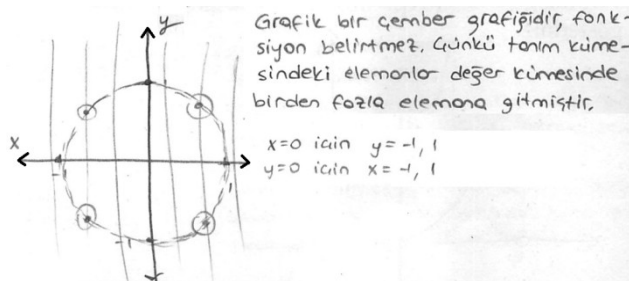 Grafik bir çember grafiğidir, fonk-
siyon belirtmez. Çünkü tanım küme-
sindeki elemanlar değer kümesinde
birden fazla elemana gitmiştir.
x=0 için y=-1, 1
y=0 için x=-1, 1
y
x
1
-1